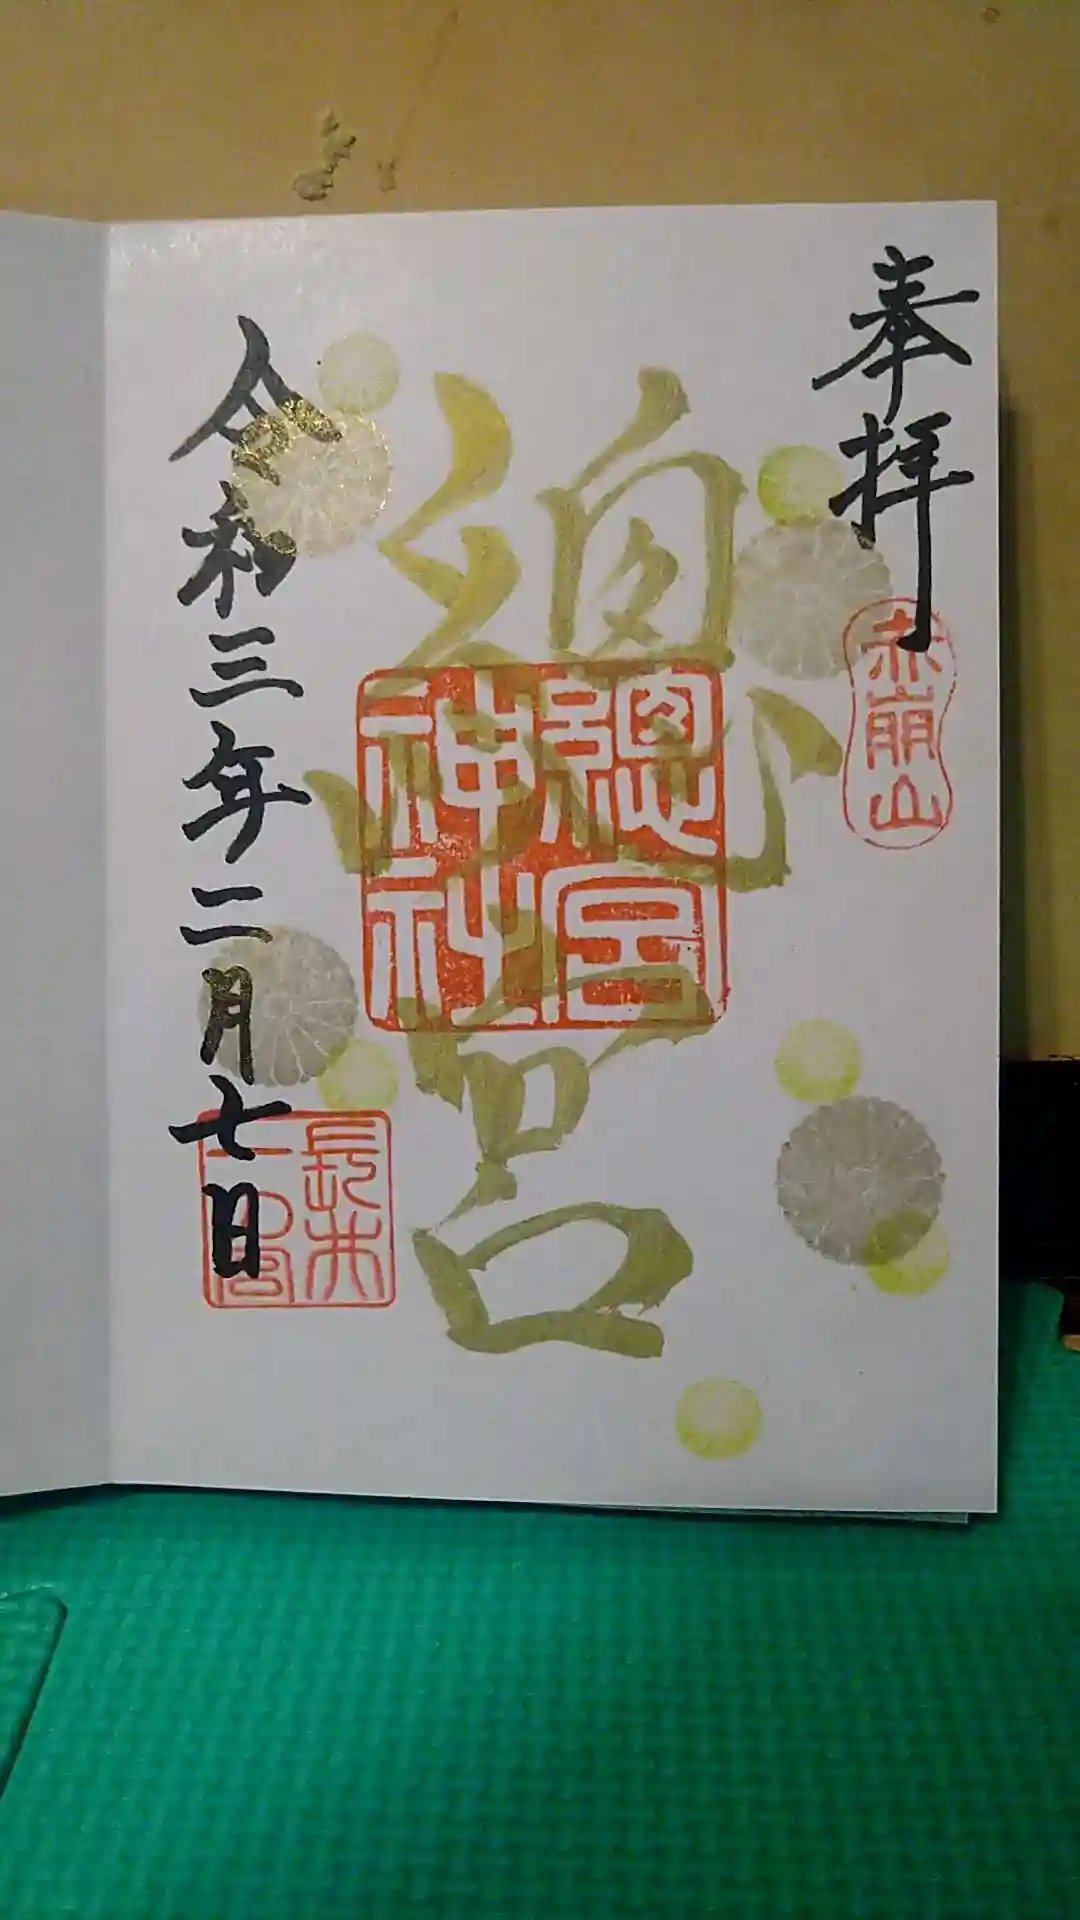 奉拝
赤崩山
總宮
總宮
神社
令和三年二月七日
長井
一宮